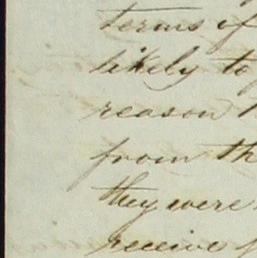 terms of
likely to
reason
from th
they were
receive